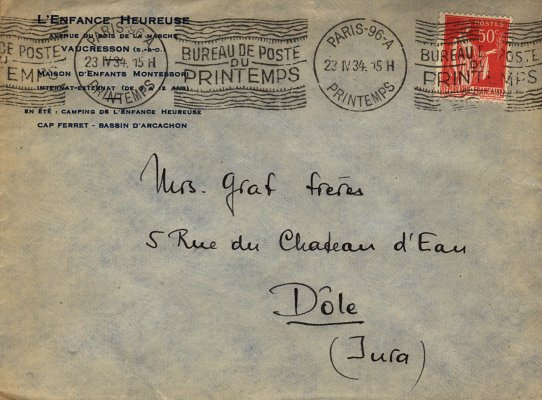 L'Enfance Heureuse
AVENUE DU BOIS DE LA MARCHE
VAUCRESSON (S.-&-O.)
Maison d'Enfants Montessori
INTERNAT-EXTERNAT (DE 2 ANS)
EN ÉTÉ : CAMPING DE L'ENFANCE HEUREUSE
CAP FERRET - BASSIN D'ARCACHON
BUREAU DE POSTE
DU
PRINTEMPS
PARIS-96-A
23 IV 34. 15 H
PRINTEMPS
BUREAU DE POSTE
DU
PRINTEMPS
PARIS-96-A
23 IV 34. 15 H
PRINTEMPS
BUREAU DE POSTE
DU
PRINTEMPS
POSTES
50c
Mrs. Graf frères
5 Rue du Chateau d'Eau
Dôle
(Jura)